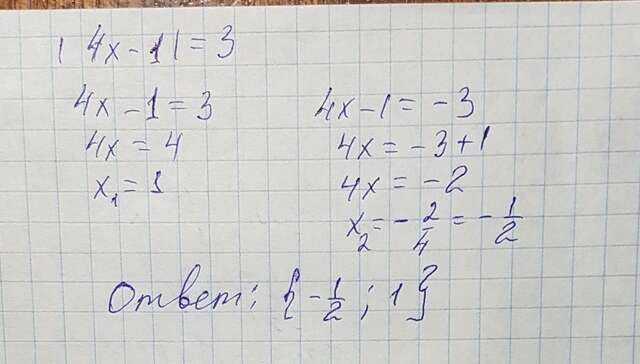 |4x-1|=3
4x-1=3
4x=4
x₁=1
4x-1=-3
4x=-3+1
4x=-2
x₂=-2/4=-1/2
Ответ: {-1/2; 1}